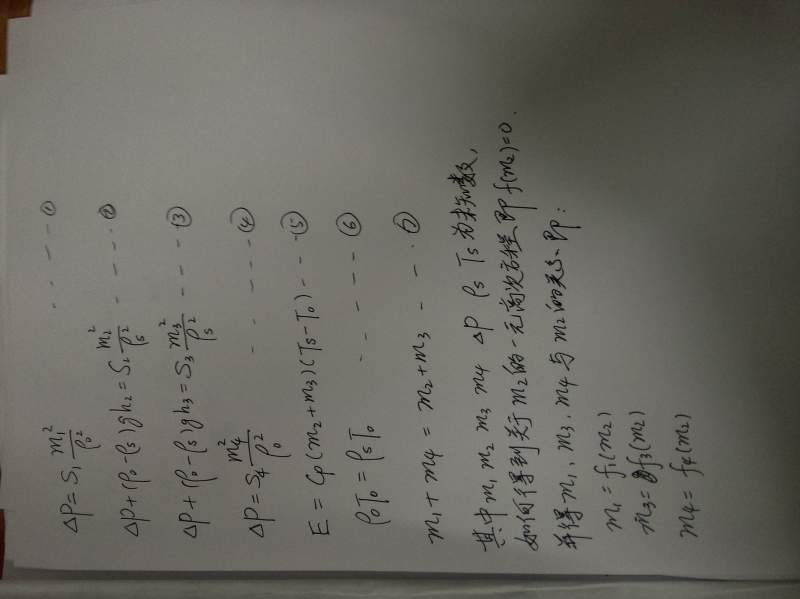 ΔP = S₁ m₁²/ρ₀² - - - - ①
ΔP + (ρ₀ - ρs)gh₂ = S₂ m₂²/ρs² - - - - ②
ΔP + (ρ₀ - ρs)gh₃ = S₃ m₃²/ρs² - - - ③
ΔP = S₄ m₄²/ρ₀² - - - - ④
E = Cp(m₂ + m₃)(Ts - T₀) - - - ⑤
ρ₀T₀ = ρsTs - - - - - ⑥
m₁ + m₄ = m₂ + m₃ - - - ⑦
其中 m₁ m₂ m₃ m₄ ΔP ρs Ts 为未知数,
如何得到关于m₂的一元高次方程 即 f(m₂)=0.
并得 m₁、m₃、m₄ 与 m₂ 的关系. 即:
m₁ = f₁(m₂)
m₃ = f₃(m₂)
m₄ = f₄(m₂)